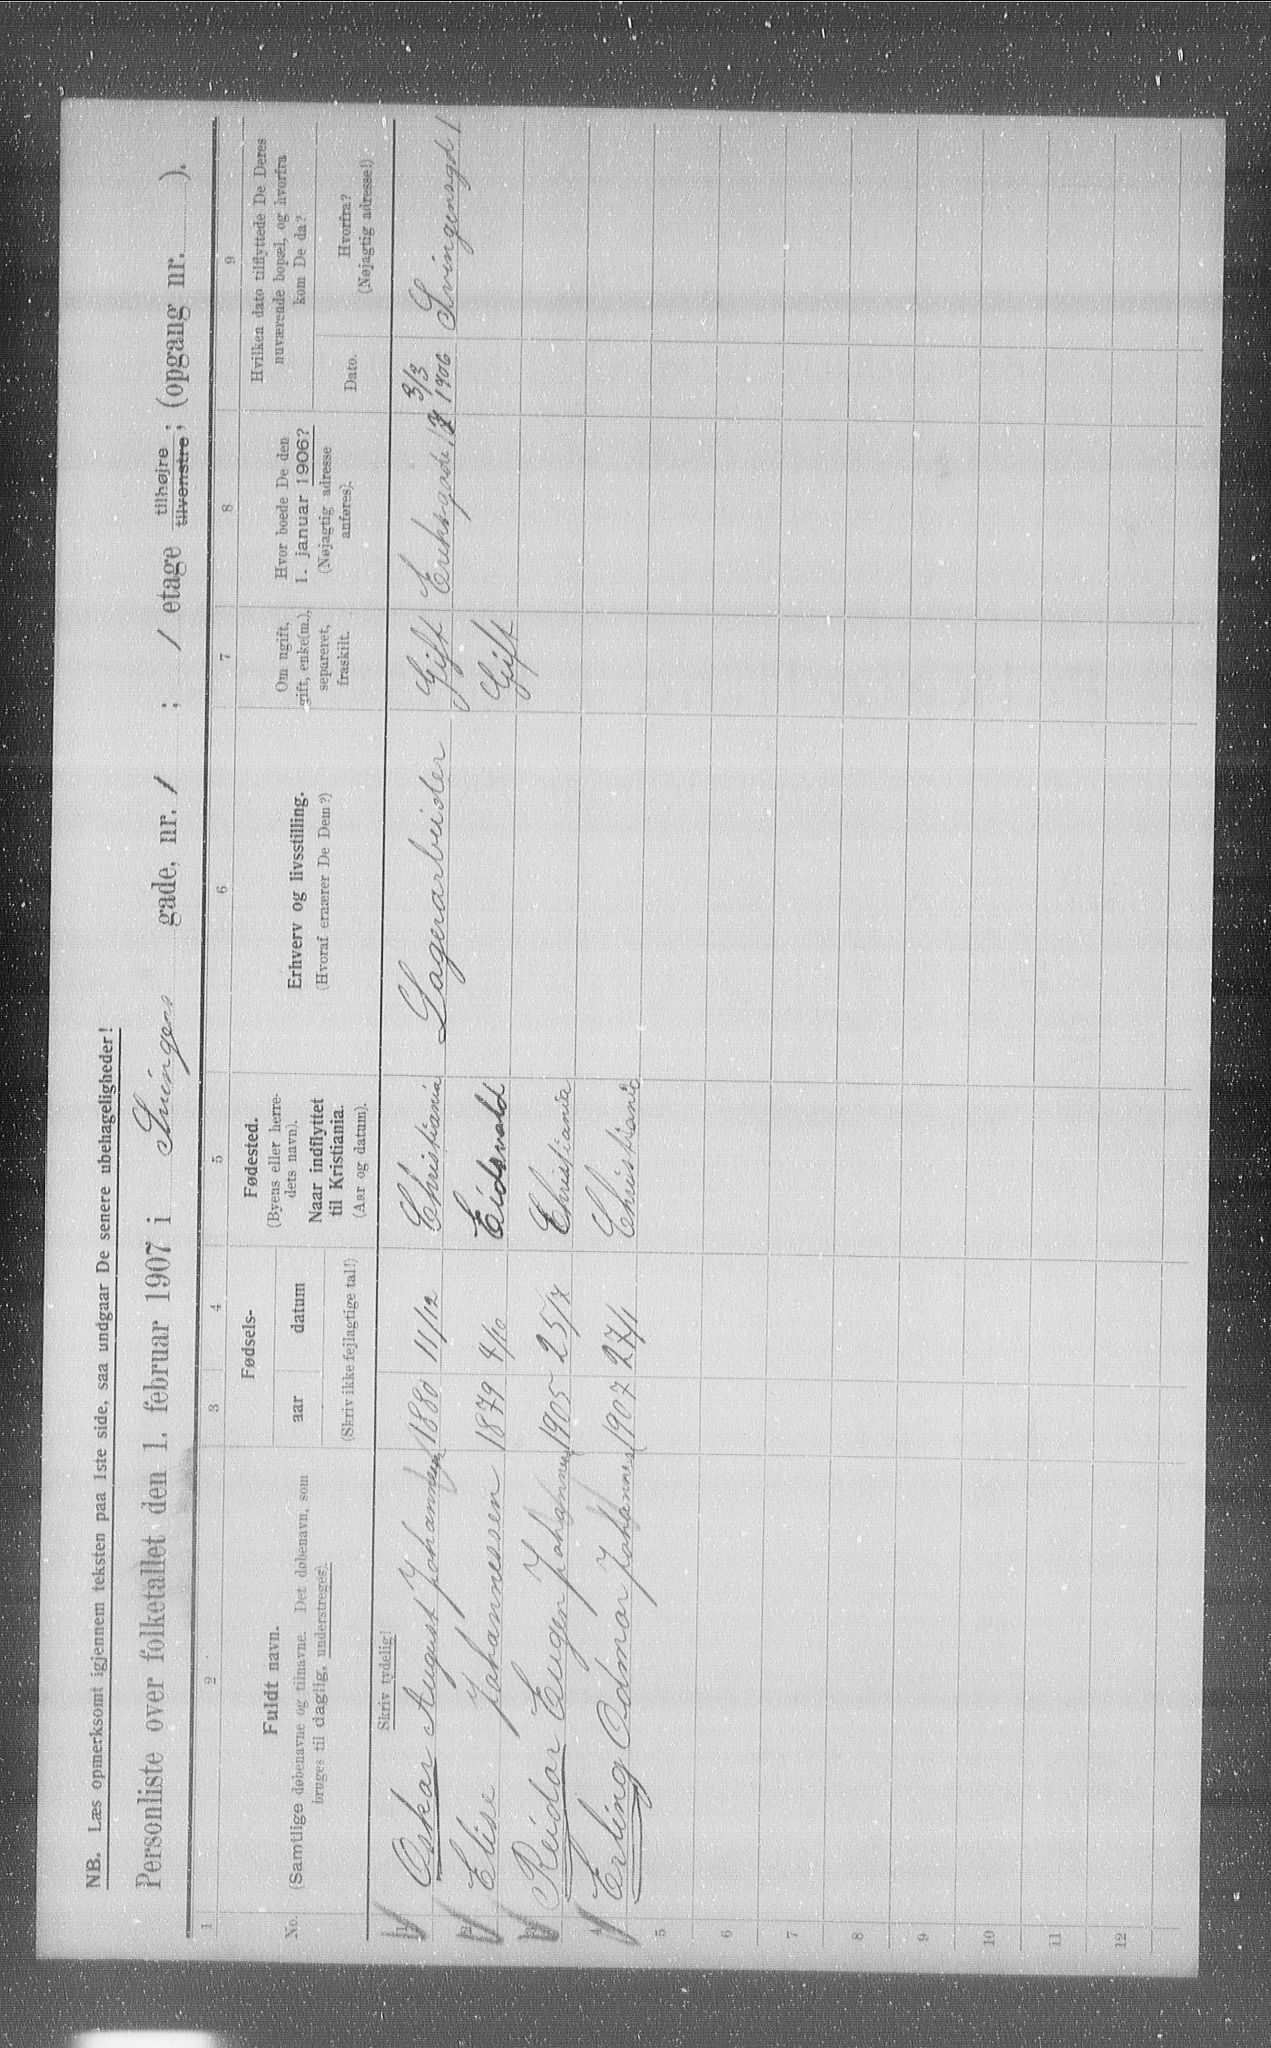 NB. Læs opmerksomt igjennem teksten paa 1ste side, saa undgaar De senere ubehageligheder!
Personliste over folketallet den 1. februar 1907 i Svingens gade, nr. 1 ; 1 etage tilhøjre tilvenstre; (opgang nr. ).
1 2 3 4 5 6 7 8 9
No.
Fuldt navn.
(Samtlige døbenavne og tilnavne. Det døbenavn, som
bruges til daglig, understreges).
Fødsels-
aar datum
(Skriv ikke fejlagtige tal!)
Fødested.
(Byens eller herre-
dets navn).
Naar indflyttet
til Kristiania.
(Aar og datum).
Erhverv og livsstilling.
(Hvoraf ernærer De Dem?)
Om ugift,
gift, enke(m.),
separeret,
fraskilt.
Hvor boede De den
1. januar 1906?
(Nøjagtig adresse
anføres).
Hvilken dato tilflyttede De Deres
nuværende bopæl, og hvorfra
kom De da?
Dato.
Hvorfra?
(Nøjagtig adresse!)
Skriv tydelig!
1 Oskar August Johannessen 1880 11/12 Christiania Lagerarbeider Gift Eriksgade 3/3 1906 Svingensgd 1
2 Elise Johannessen 1879 4/10 Eidsvold Gift
3 Reidar Eugen Johannes 1905 25/7 Christiania
4 Erling Odmar Johannes 1907 27/1 Christiania
5
6
7
8
9
10
11
12